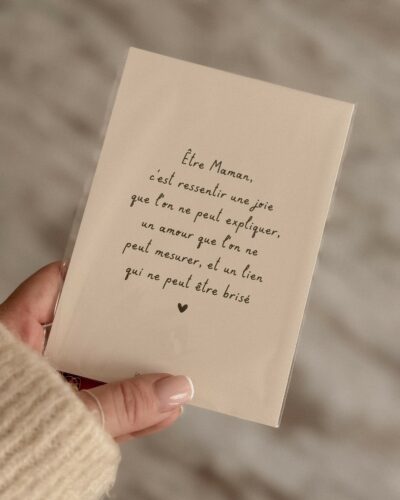 Être Maman,
c'est ressentir une joie
que l'on ne peut expliquer,
un amour que l'on ne
peut mesurer, et un lien
qui ne peut être brisé